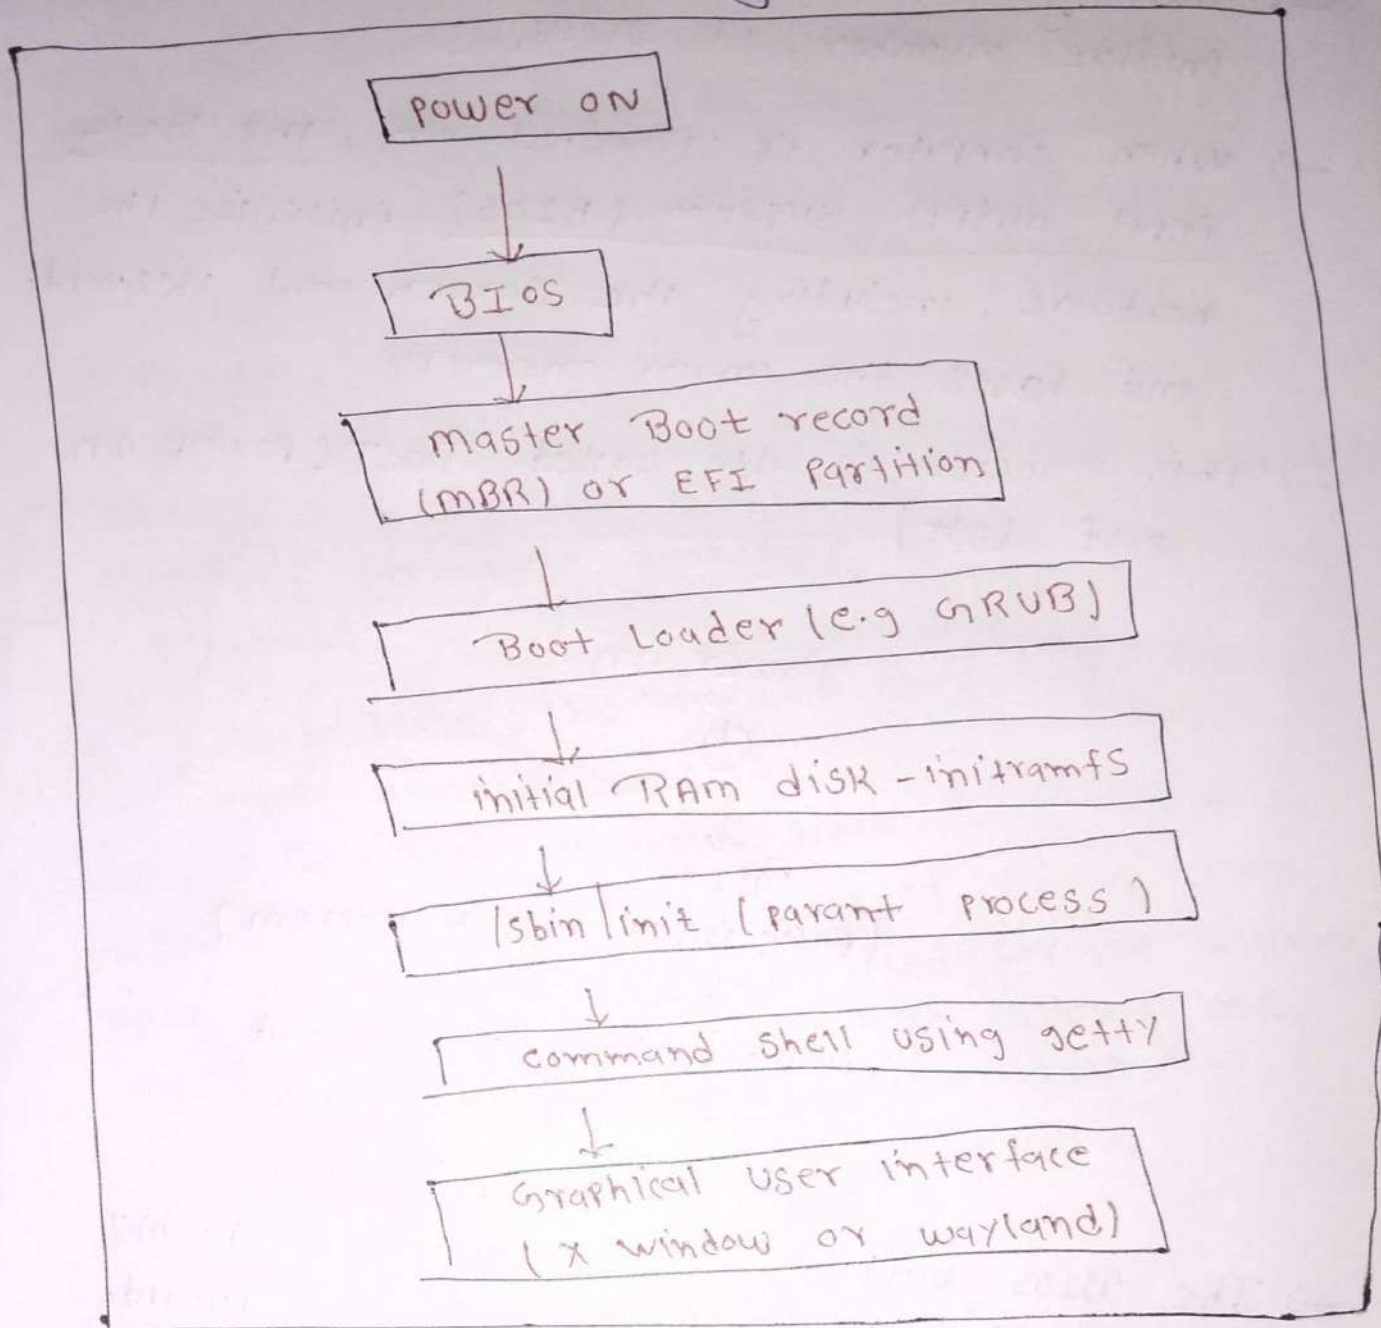 Power ON
BIOS
master Boot record
(MBR) or EFI Partition
Boot Loader (e.g GRUB)
initial RAM disk - initramfs
/sbin/init (parant process)
command shell using getty
Graphical user interface
(x window or wayland)